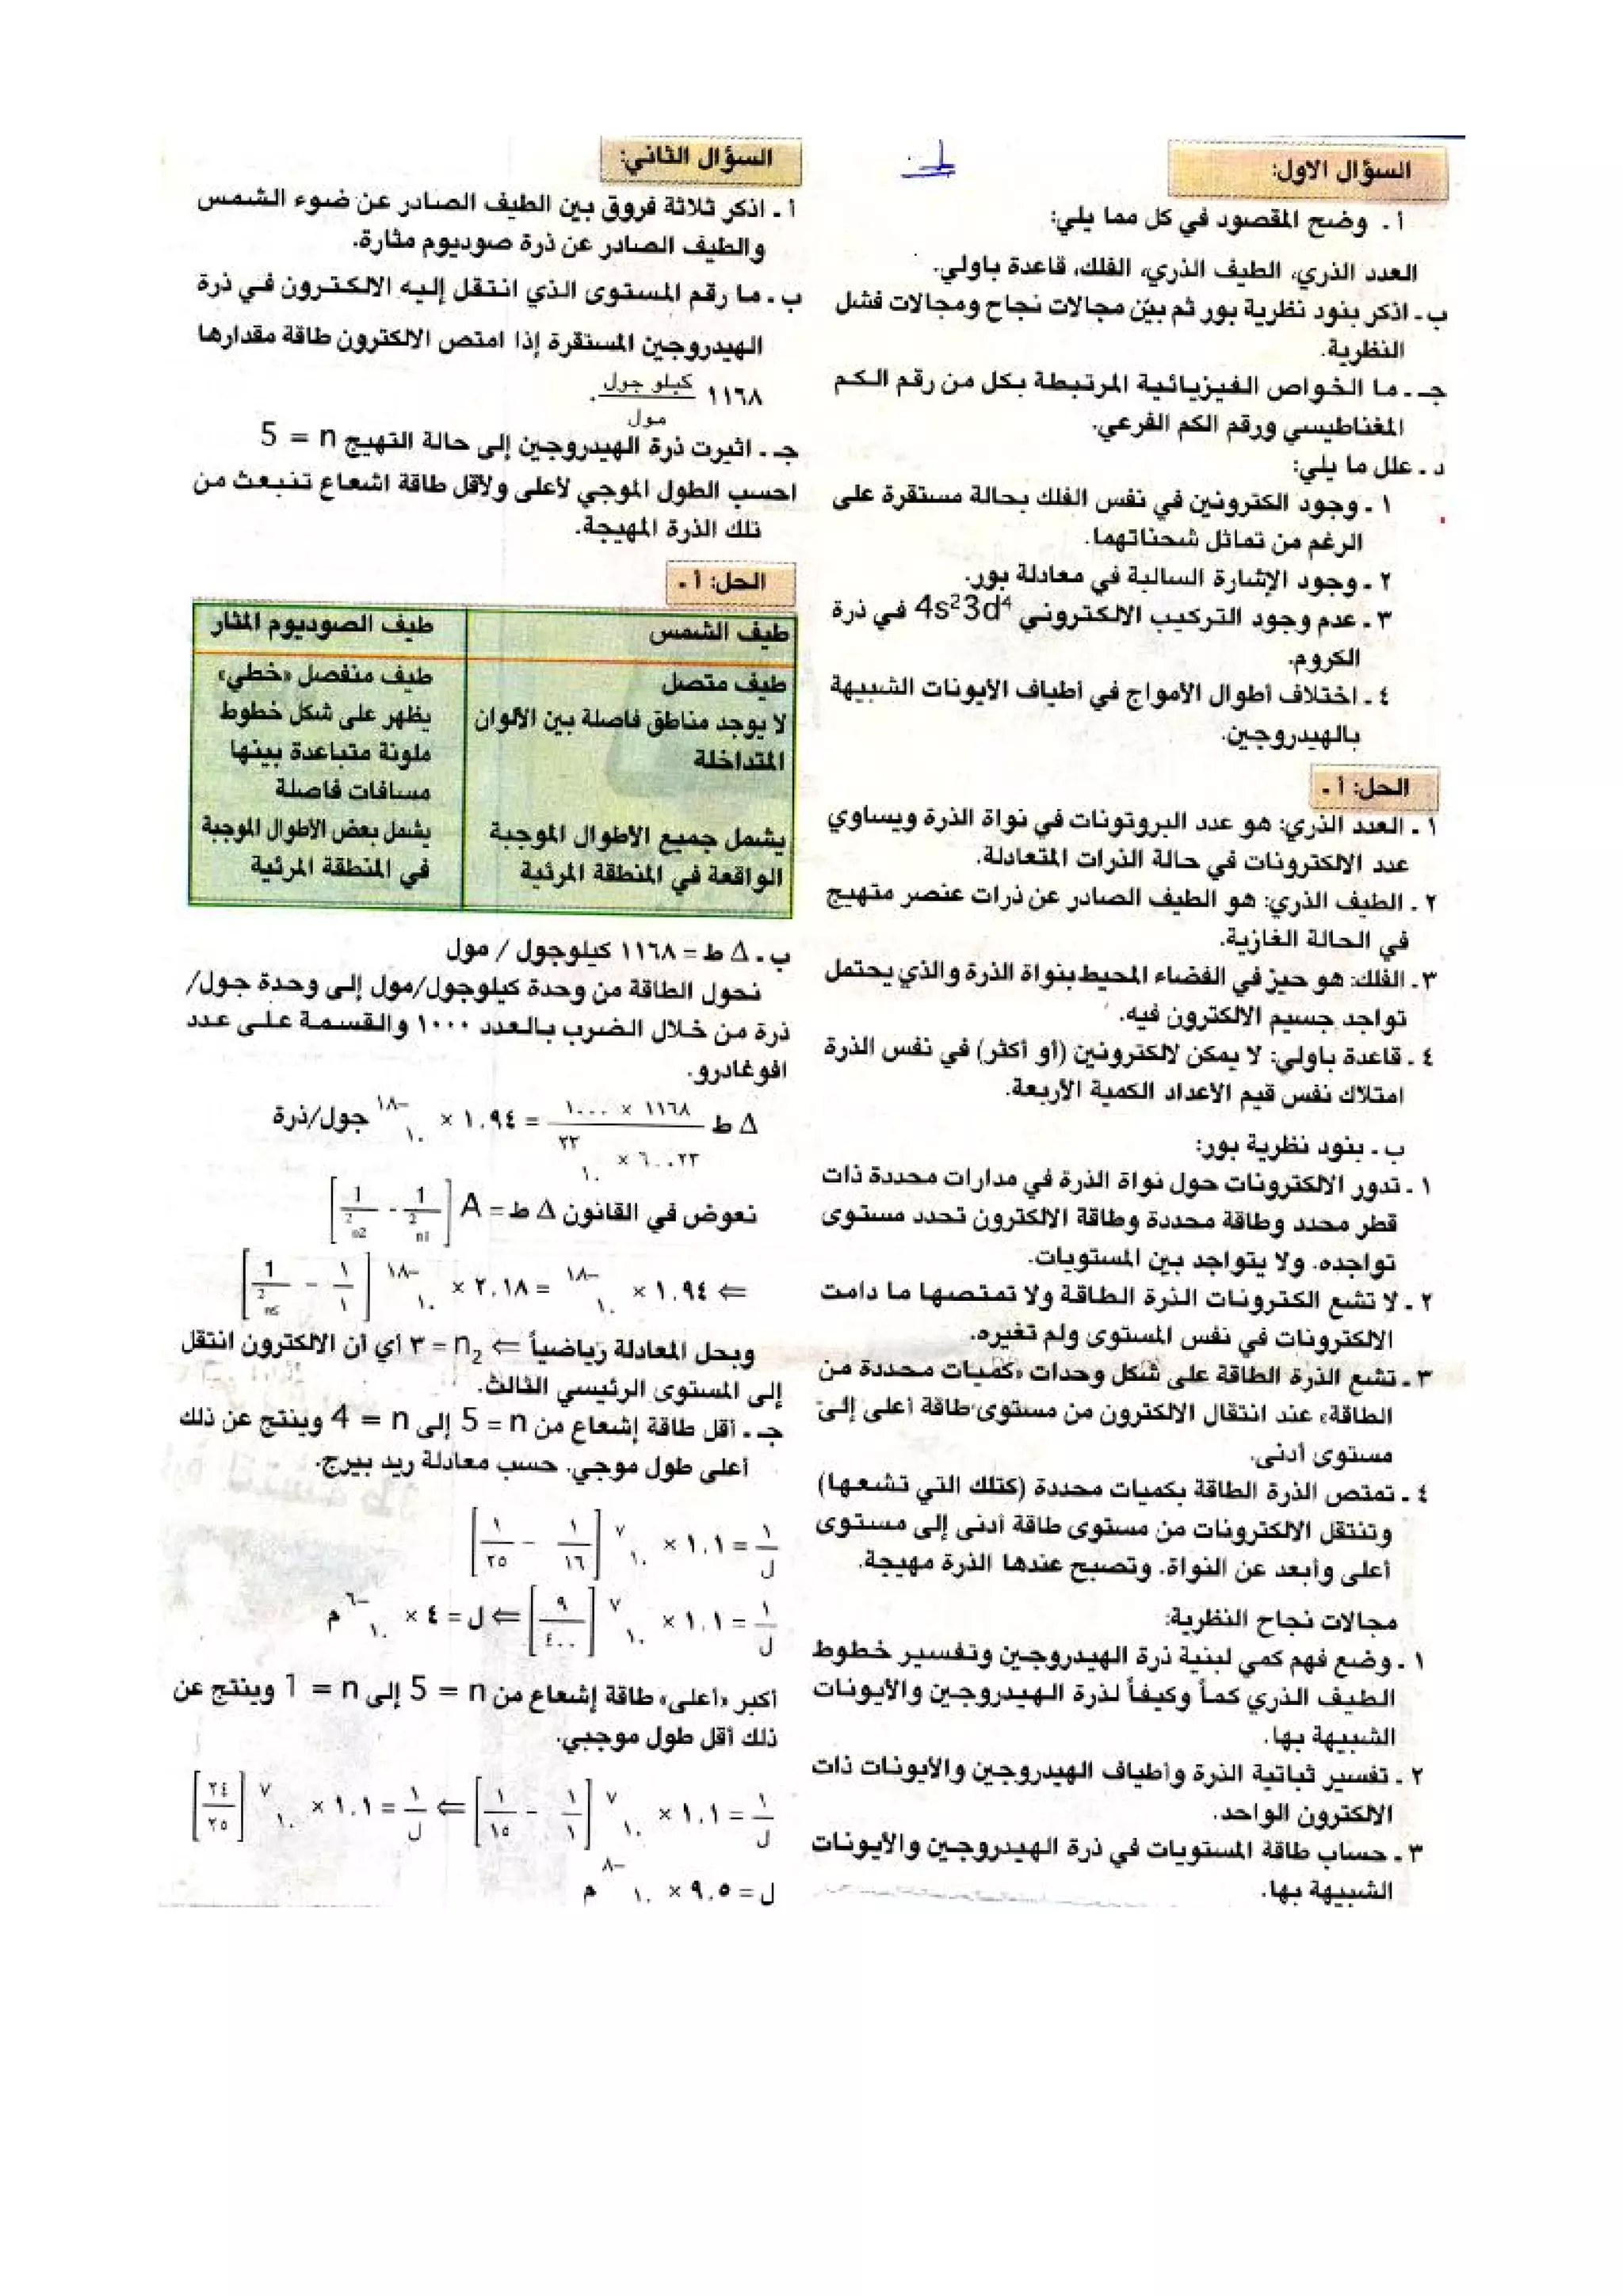 السؤال الاول:
أ. وضح المقصود في كل مما يلي:
العدد الذري، الطيف الذري، الفلك، قاعدة باولي.
ب- اذكر بنود نظرية بور ثم بيّن مجالات نجاح ومجالات فشل
النظرية.
جـ- ما الخواص الفيزيائية المرتبطة بكل من رقم الكم
المغناطيسي ورقم الكم الفرعي.
د. علل ما يلي:
١- وجود الكترونين في نفس الفلك بحالة مستقرة على
الرغم من تماثل شحناتهما.
٢- وجود الإشارة السالبة في معادلة بور.
٣- عدم وجود التركيب الالكتروني 4s²3d⁴ في ذرة
الكروم.
٤- اختلاف أطوال الأمواج في أطياف الأيونات الشبيهة
بالهيدروجين.
الحل: أ-
١- العدد الذري: هو عدد البروتونات في نواة الذرة ويساوي
عدد الالكترونات في حالة الذرات المتعادلة.
٢- الطيف الذري: هو الطيف الصادر عن ذرات عنصر متهيج
في الحالة الغازية.
٣- الفلك: هو حيز في الفضاء المحيط بنواة الذرة والذي يحتمل
تواجد جسيم الالكترون فيه.
٤- قاعدة باولي: لا يمكن لالكترونين (أو أكثر) في نفس الذرة
امتلاك نفس قيم الاعداد الكمية الأربعة.
ب- بنود نظرية بور:
١- تدور الالكترونات حول نواة الذرة في مدارات محددة ذات
قطر محدد وطاقة محددة وطاقة الالكترون تحدد مستوى
تواجده. ولا يتواجد بين المستويات.
٢- لا تشع الكترونات الذرة الطاقة ولا تمتصها ما دامت
الالكترونات في نفس المستوى ولم تغيره.
٣- تشع الذرة الطاقة على شكل وحدات «كميات محددة من
الطاقة» عند انتقال الالكترون من مستوى طاقة أعلى إلى
مستوى أدنى.
٤- تمتص الذرة الطاقة بكميات محددة (كتلك التي تشعها)
وتنتقل الالكترونات من مستوى طاقة أدنى إلى مستوى
أعلى وأبعد عن النواة. وتصبح عندها الذرة مهيجة.
مجالات نجاح النظرية:
١- وضع فهم كمي لبنية ذرة الهيدروجين وتفسير خطوط
الطيف الذري كماً وكيفاً لذرة الهيدروجين والأيونات
الشبيهة بها.
٢- تفسير ثباتية الذرة وأطياف الهيدروجين والايونات ذات
الالكترون الواحد.
٣- حساب طاقة المستويات في ذرة الهيدروجين والأيونات
الشبيهة بها.
السؤال الثاني:
أ- اذكر ثلاثة فروق بين الطيف الصادر عن ضوء الشمس
والطيف الصادر عن ذرة صوديوم مثارة.
ب- ما رقم المستوى الذي انتقل إليه الالكترون في ذرة
الهيدروجين المستقرة إذا امتص الالكترون طاقة مقدارها
١١٦٨ كيلو جول / مول.
جـ- اثيرت ذرة الهيدروجين إلى حالة التهيج n = 5
احسب الطول الموجي لأعلى ولأقل طاقة اشعاع تنبعث من
تلك الذرة المهيجة.
الحل: أ-
طيف الشمس
طيف الصوديوم المثار
طيف متصل
طيف منفصل «خطي»
لا يوجد مناطق فاصلة بين الألوان
يظهر على شكل خطوط
المتداخلة
ملونة متباعدة بينها
مسافات فاصلة
يشمل جميع الأطوال الموجبة
يشمل بعض الأطوال الموجبة
الواقعة في المنطقة المرئية
في المنطقة المرئية
ب- Δ ط = ١١٦٨ كيلوجول / مول
نحول الطاقة من وحدة كيلوجول/مول إلى وحدة جول/
ذرة من خلال الضرب بالعدد ١٠٠٠ والقسمة على عدد
افوغادرو.
Δ ط = ١١٦٨ × ١٠٠٠ / ٦.٠٢٣ × ١٠^٢٣ = ١.٩٤ × ١٠^-١٨ جول/ذرة
نعوض في القانون Δ ط = A [1/n1² - 1/n2²]
⇐ ١.٩٤ × ١٠^-١٨ = ٢.١٨ × ١٠^-١٨ [١/١ - 1/n2²]
وبحل المعادلة رياضياً ⇐ n₂ = ٣ أي أن الالكترون انتقل
إلى المستوى الرئيسي الثالث.
جـ- أقل طاقة إشعاع من n = 5 إلى n = 4 وينتج عن ذلك
أعلى طول موجي. حسب معادلة ريد بيرج.
١/ل = ١.١ × ١٠^٧ [١/١٦ - ١/٢٥]
١/ل = ١.١ × ١٠^٧ [٩/٤٠٠] ⇐ ل = ٤ × ١٠^-٦ م
أكبر «أعلى» طاقة إشعاع من n = 5 إلى n = 1 وينتج عن
ذلك أقل طول موجبي.
١/ل = ١.١ × ١٠^٧ [١/١ - ١/١٥] ⇐ ١/ل = ١.١ × ١٠^٧ [٢٤/٢٥]
ل = ٩.٥ × ١٠^-٨ م